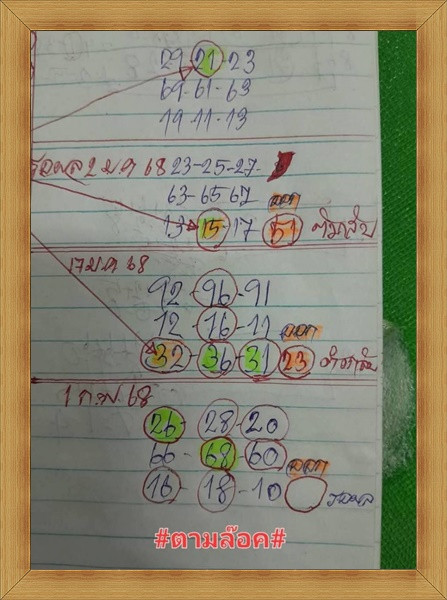 29-21-23
69-61-63
19-11-13
รอผล 2 ม.ค 68 23-25-27-
63-65-67 ออก
13-15-17 51
17 ม ค 68
92-96-91
12-16-11 ออก
32-36-31 23
1 ก.พ. 68
26-28-20
66-68-60 ออก
16-18-10 รอผล
#ตามล๊อค#